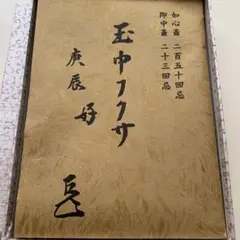 如心斎 二百五十回忌
即中斎 二十三回忌
玉巾フクサ
庚辰 好